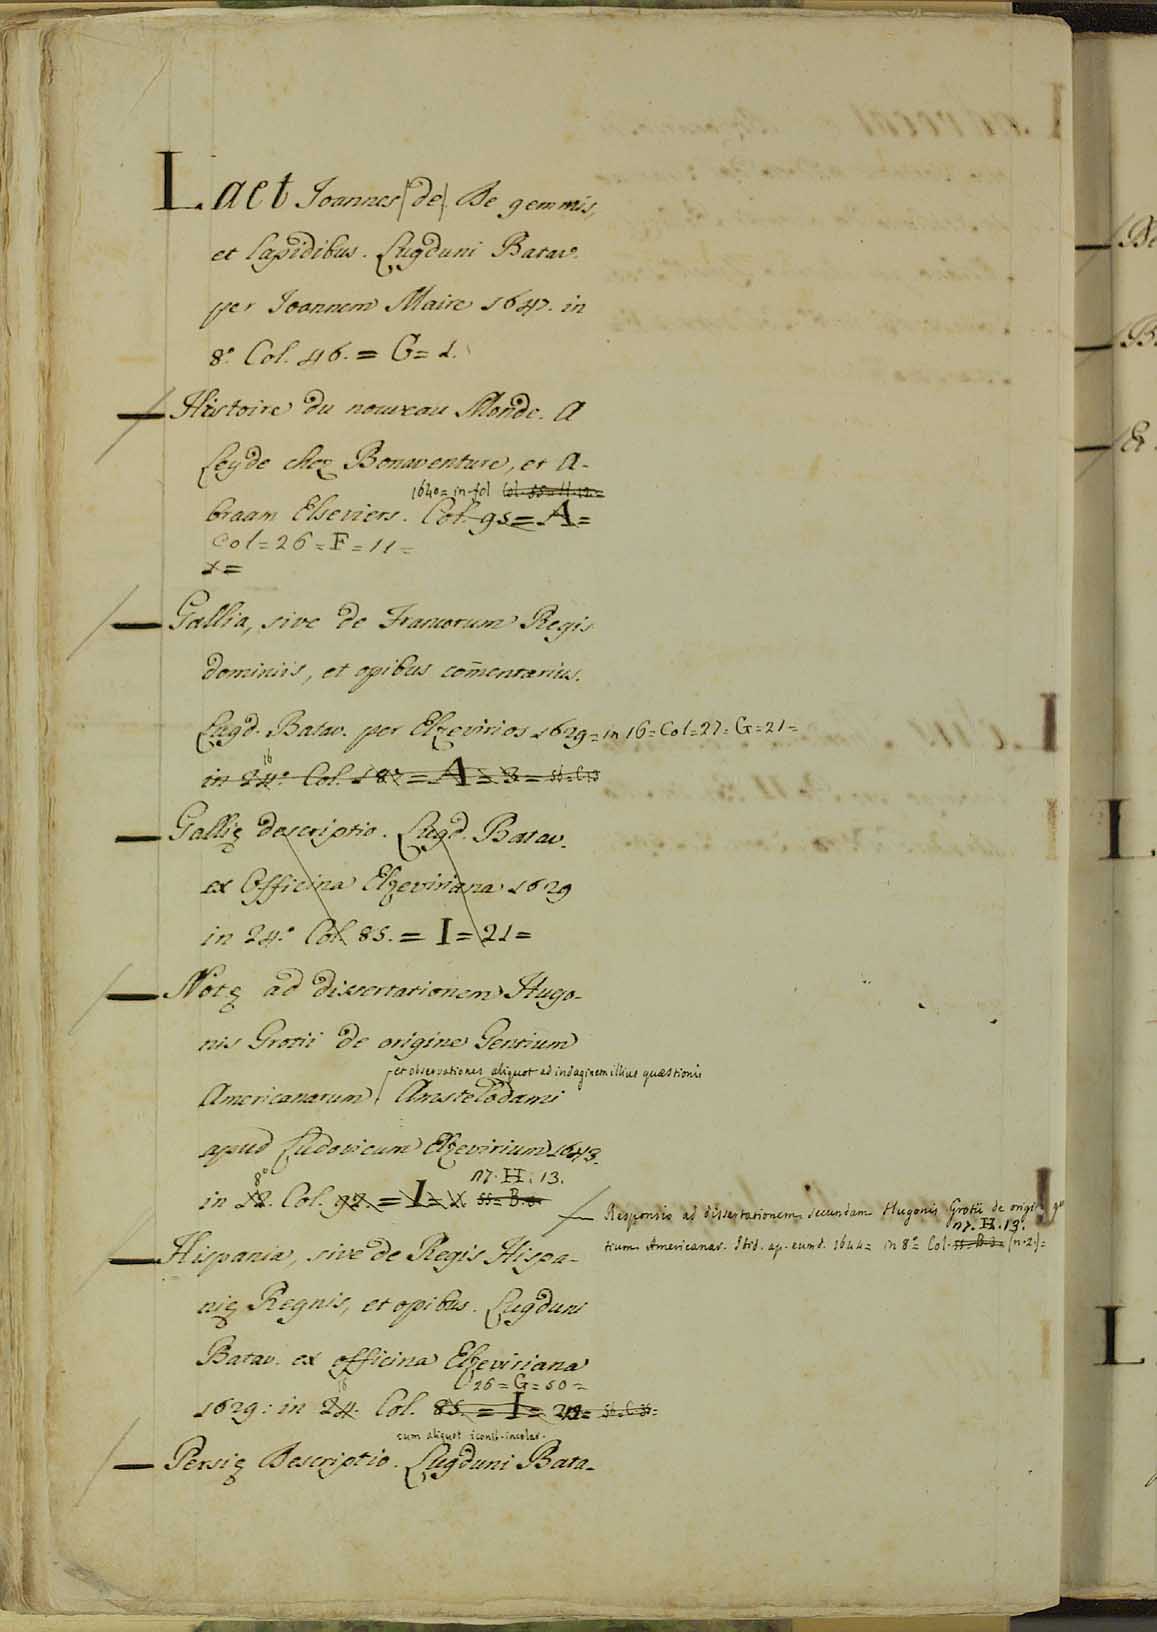 Laet Joannes (de) De gemmis,
et Lapidibus. Lugduni Batav.
per Joannem Maire 1647. in
8.° Col. 46. = G = 1.
— Histoire du nouveau Monde. A
Leyde chez Bonaventure, et A-
1640 = in fol Col. 55 = H. 12 =
braam Elseviers. Col. 95 = A =
Col = 26 = F = 11 =
1 =
— Gallia, sive de Francorum Regis
dominiis, et opibus com̄entarius.
Lugd. Batav. per Elzevirios 1629 = in 16 = Col = 27 = G = 21 =
16
in 24.° Col. 187 = A = 3 =
— Gallię descriptio. Lugd. Batav.
ex Officina Elzeviriana 1629
in 24.° Col. 85. = I = 21 =
— Notę ad dissertationem Hugo-
nis Grotii de origine Gentium
et observationes aliquot ad indaginem illius quæstionis
Americanarum. Amstelodami
apud Ludovicum Elzevirium 1643.
8° 117. H. 13.
in 12. Col. 92. = I = X 55 = B. 8 =
— Responsio ad dissertationem secundam Hugonis Grotii de origi ge
117. H. 13.
tium Americanar. Ibid. ap. eund. 1644 = in 8° = Col. 55 = B. 8 = (n. 2.) =
— Hispania, sive de Regis Hispa-
nię Regnis, et opibus. Lugduni
Batav. ex officina Elzeviriana
16 26 = G = 50 =
1629: in 24. Col. 85. = I =
cum aliquot iconib. incolar.
— Persię Descriptio. Lugduni Bata-
De
L
L